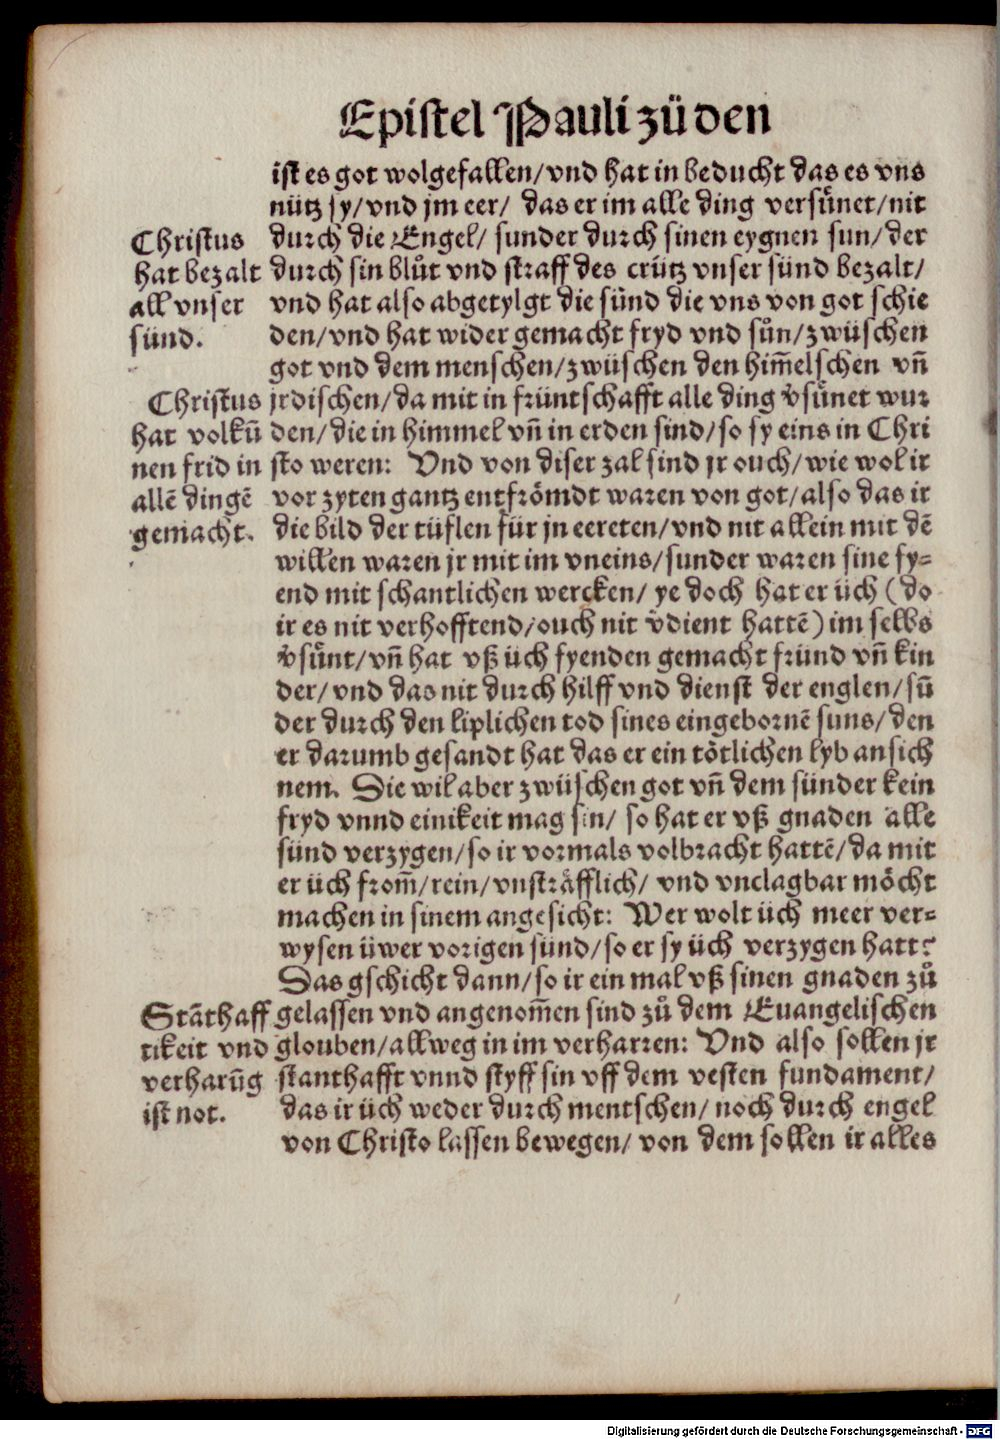 Epistel Pauli zü den
ist es got wolgefallen/ vnd hat in beducht das es vns
nütz sy/ vnd jm eer/ das er im alle ding versuͤnet/ nit
durch die Engel/ sunder durch sinen eygnen sun/ der
durch sin bluͦt vnd straff des crütz vnser sünd bezalt/
vnd hat also abgetylgt die sünd die vns von got schie
den/ vnd hat wider gemacht fryd vnd suͦn/ zwüschen
got vnd dem menschen/ zwüschen den him̃elschen vñ
jrdischen/ da mit in früntschafft alle ding v̊suͤnet wur
den/ die in himmel vñ in erden sind/ so sy eins in Chri
sto weren: Vnd von diser zal sind jr ouch/ wie wol ir
vor zyten gantz entfroͤmdt waren von got/ also das ir
die bild der tüflen für jn eereten/ vnd nit allein mit dẽ
willen waren jr mit im vneins/ sunder waren sine fy⸗
end mit schantlichen wercken/ ye doch hat er üch (do
ir es nit verhofftend/ ouch nit v̊dient hattẽ) im selbs
v̊suͤnt/ vñ hat vß üch fyenden gemacht fründ vñ kin
der/ vnd das nit durch hilff vnd dienst der englen/ sũ
der durch den liplichen tod sines eingebornẽ suns/ den
er darumb gesandt hat das er ein toͤtlichen lyb an sich
nem. Die wil aber zwüschen got vñ dem sünder kein
fryd vnnd einikeit mag sin/ so hat er vß gnaden alle
sünd verzygen/ so ir vormals volbracht hattẽ/ da mit
er üch from̃/ rein/ vnstraͤfflich/ vnd vnclagbar moͤcht
machen in sinem angesicht: Wer wolt üch meer ver⸗
wysen üwer vorigen sünd/ so er sy üch verzygen hatt?
Das gschicht dann/ so ir ein mal vß sinen gnaden zuͦ
gelassen vnd angenom̃en sind zuͦ dem Euangelischen
glouben/ allweg in im verharren: Vnd also sollen jr
stanthafft vnnd styff sin vff dem vesten fundament/
das ir üch weder durch mentschen/ noch durch engel
von Christo lassen bewegen/ von dem sollen ir alles
Christus
hat bezalt
all vnser
sünd.
Christus
hat volkũ
nen frid in
allẽ dingẽ
gemacht.
Stãthaff
tikeit vnd
verharũg
ist not.
Digitalisierung gefördert durch die Deutsche Forschungsgemeinschaft - DFG